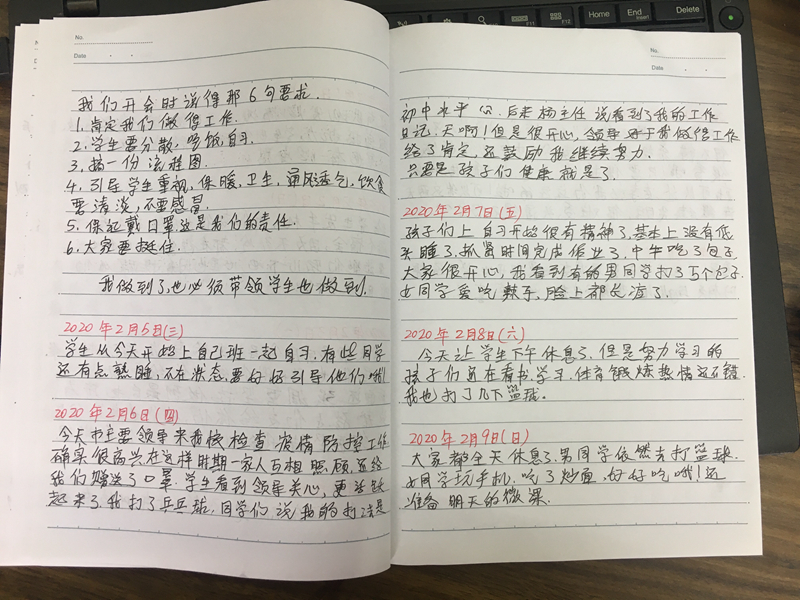 No.
Date
我们开会时说得那6句要求.
1.肯定我们做得工作.
2.学生要分散,吃饭,自习.
3.搞一份流程图.
4.引导学生重视,保暖,卫生,通风透气,饮食
要清淡,不要感冒.
5.保证戴口罩这是我们的责任.
6.大家要挺住.
我做到了,也必须带领学生也做到.
2020年2月5日(三)
学生从今天开始上自己班一起自习.有些同学
还有点熟睡,不在状态,要好好引导他们哦!
2020年2月6日(四)
今天市主要领导来我校检查疫情防控工作
确实很高兴在这样时期一家人互相照顾,还给
我们赠送了口罩.学生看到领导关心,更活跃
起来了.我打了乒乓球,同学们说我的打法是
No.
Date
初中水平 后来杨主任说看到了我的工作
日记.天啊!但是很开心,领导对于我做得工作
给了肯定还鼓励我继续努力.
只要是孩子们健康就是了.
2020年2月7日(五)
孩子们上自习开始很有精神了,基本上没有低
头睡了,抓紧时间完成作业了,中午吃了包子,
大家很开心,我看到有的男同学打了5个包子.
女同学爱吃辣子,脸上都长痘了.
2020年2月8日(六)
今天让学生下午休息了.但是努力学习的
孩子们还在看书,学习.体育锻炼热情还不错.
我也打了几下篮球.
2020年2月9日(日)
大家都全天休息了.男同学依然去打篮球.
女同学玩手机,吃了炒面,好好吃哦!还
准备明天的微课.
F11
F12
Home
End
Insert
Delete